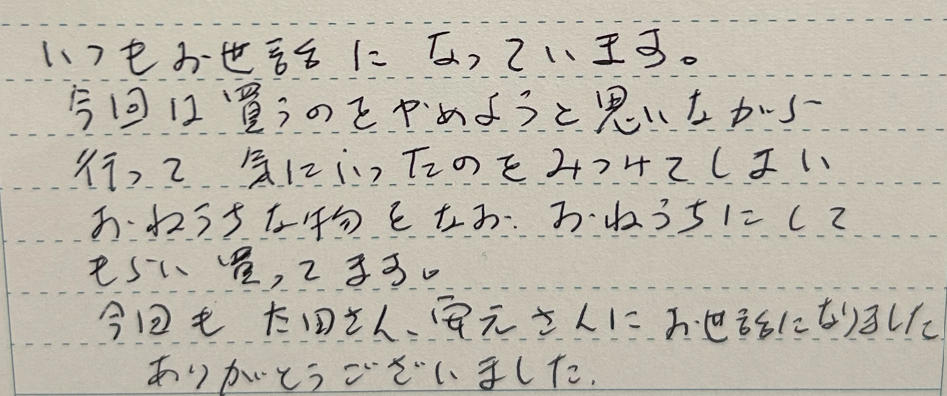 いつもお世話になっています。
今回は買うのをやめようと思いながら
行って 気にいったのをみつけてしまい
おねうちな物をなお、おねうちにして
もらい 買ってます。
今回も 太田さん、安元さんにお世話になりました
ありがとうございました。